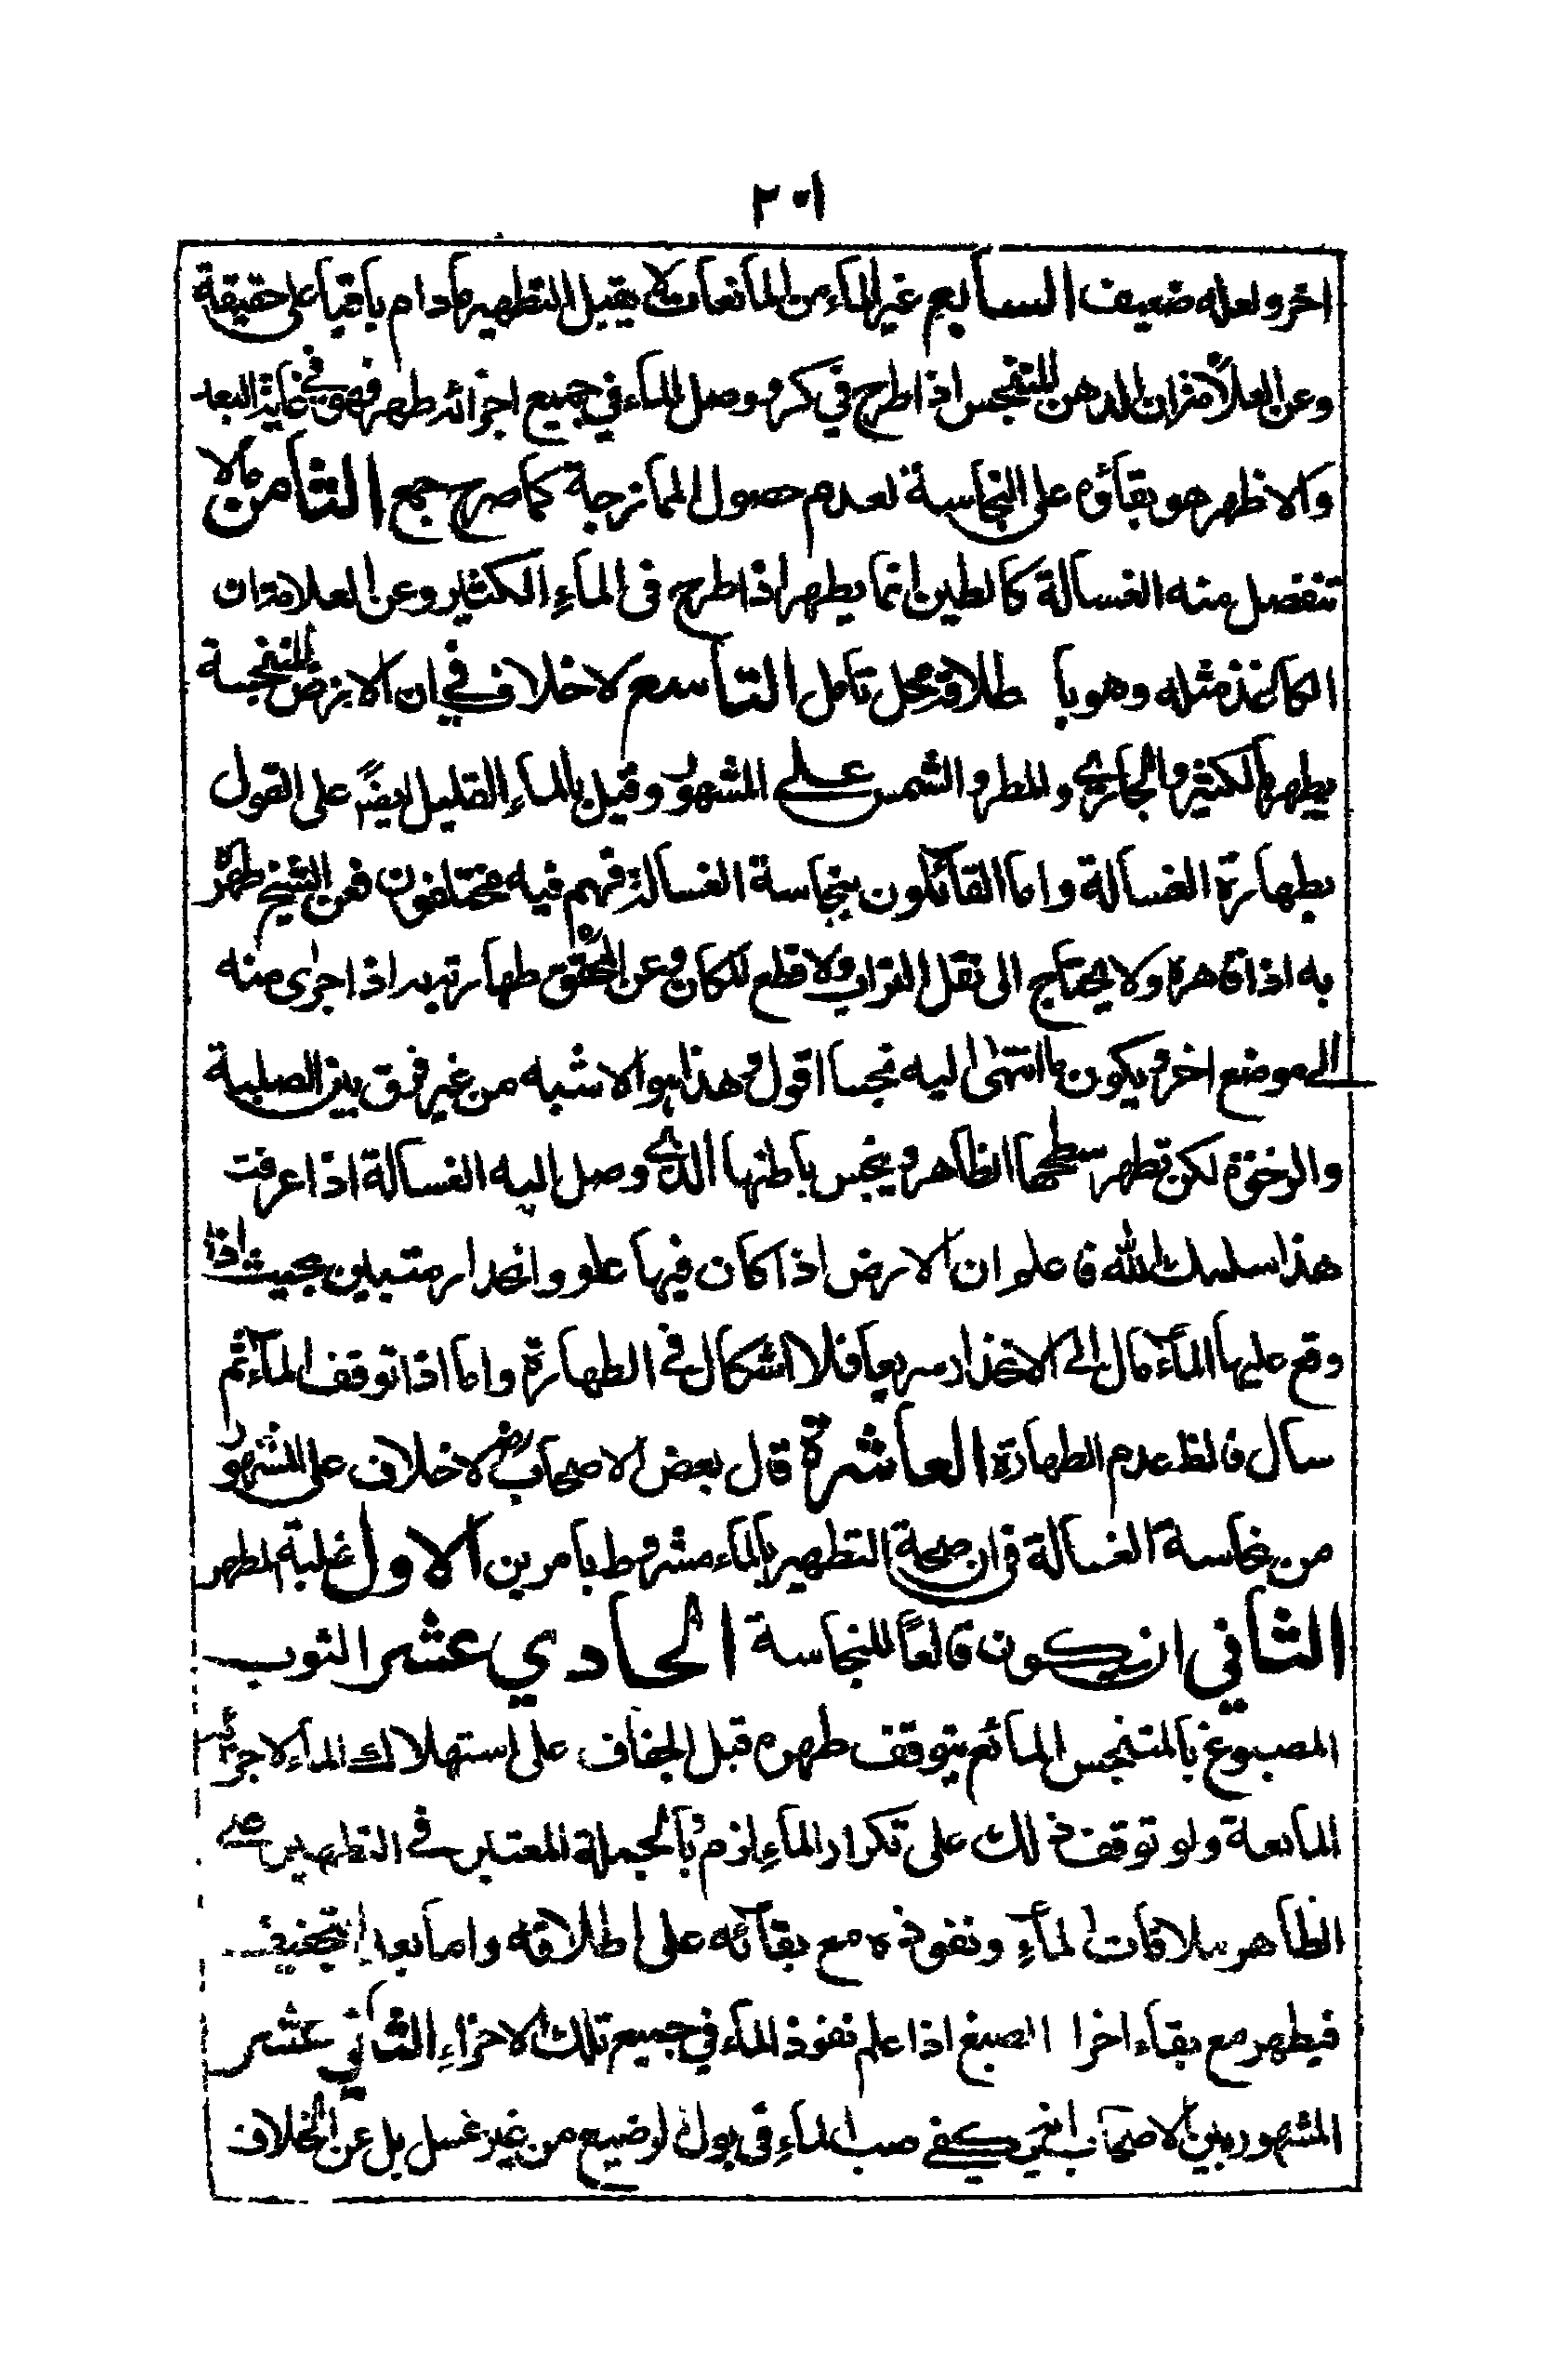 ٢٠١
اخر ولعله ضعيف السابع غير الماء من المائعات لا يقبل التطهير مادام باقيا على حقيقة
وعن العلامة ان الدهن المتنجس اذا طرح في كر ووصل الماء في جميع اجزائه طهر فهو في غاية البعد
والاظهر هو بقاؤه على النجاسة لعدم حصول الممازجة كما صرح جمع الثامن مالا
تنفصل منه الغسالة كالطين انما يطهر اذا طرح في الماء الكثير وعن العلامة ان
الكاغذ مثله وهو باطلاقه محل تامل التاسع لا خلاف في ان الارض المتنجسة
يطهر بالكثير والجاري والمطر والشمس على المشهور وقيل بالماء القليل ايضً على القول
بطهارة الغسالة واما القائلون بنجاسة الغسالة فهم فيه مختلفون فعن الشيخ طهر
به اذا قاهره ولا يحتاج الى نقل التراب ولا قطع المكان وعن المحقق طهارته به اذا اجرى منه
الى موضع اخر ويكون ما انتهى اليه نجسا اقول وهذا هو الاشبه من غير فرق بين الصلبة
والرخوة لكن تطهر سطحها الظاهر وينجس باطنها الذي وصل اليه الغسالة اذا عرفت
هذا سلمك الله فاعلم ان الارض اذا كان فيها علو وانحدار متبين بحيث اذا
وقع عليها الماء مال الى الانحدار سريعا فلا اشكال في الطهارة واما اذا توقف الماء ثم
سال فالظ عدم الطهارة العاشرة قال بعض الاصحاب رض لا خلاف على المشهور
من نجاسة الغسالة في ان صحة التطهير بالماء مشروط بامرين الاول غلبة المطهر
الثاني ان يكون قالعًا للنجاسة الحادي عشر الثوب
المصبوغ بالمتنجس المائع يتوقف طهره قبل الجفاف على استهلاك الماء لاجزائه
المايعة ولو توقف ذلك على تكرار الماء لزم بالجملة المعتبر في التطهير
الظاهر ملاقات الماء ونفوذه مع بقائه على اطلاقه واما بعد
فيطهر مع بقاء اخرا الصبغ اذا علم نفوذ الماء في جميع تلك الاجزاء الثاني عشر
المشهور بين الاصحاب انه يكفي صب الماء في بول الرضيع من غير غسل بل عن الخلاف